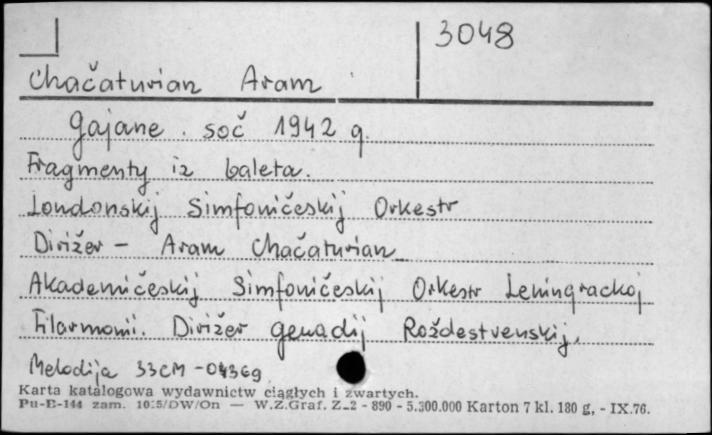 3048
Chačaturian Aram
Gajane. soč 1942 g.
Fragmenty iz baleta.
Londonskij Simfoničeskij Orkestr
Dirižer - Aram Chačaturian
Akademičeskij Simfoničeskij Orkestr Leningrackoj
Filarmonii. Dirižer Genadij Roždestvenskij.
Melodija 33CM-04369
Karta katalogowa wydawnictw ciągłych i zwartych.
Pu-E-144 zam. 1025/DW/On — W.Z.Graf. Z-2 - 890 - 5.300.000 Karton 7 kl. 180 g, - IX.76.